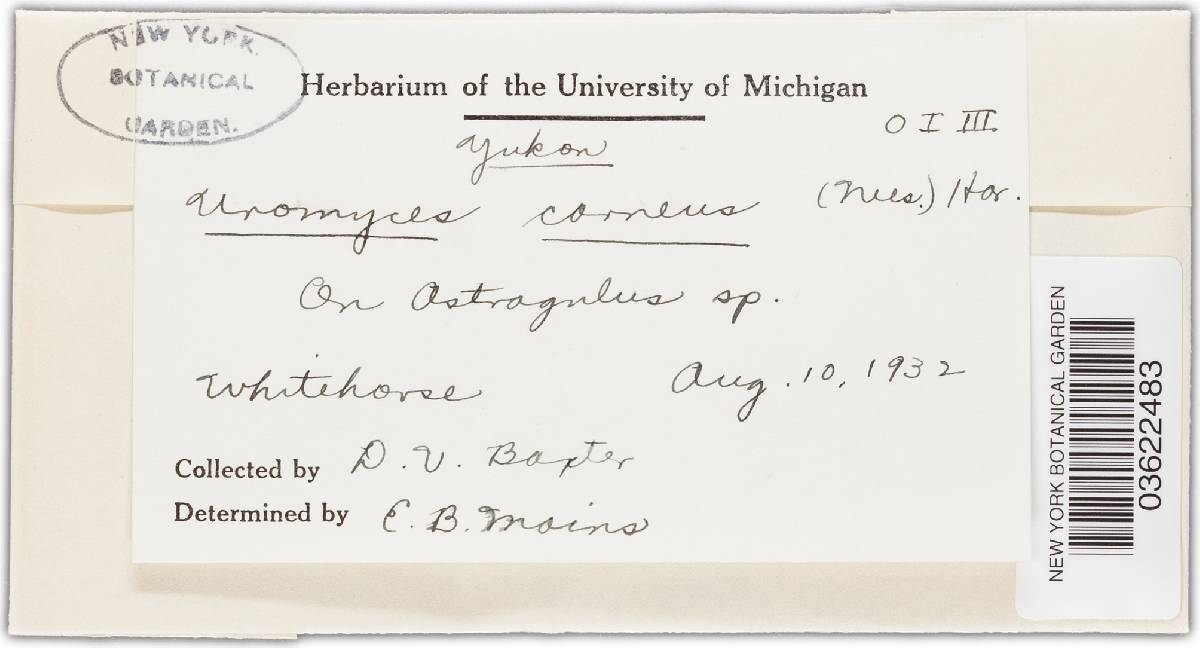 NEW YORK
BOTANICAL
GARDEN.
Herbarium of the University of Michigan
O I III.
Yukon
Uromyces corneus (Nees.) Har.
On Astragulus sp.
Whitehorse Aug. 10, 1932
Collected by D. V. Baxter
Determined by E. B. Mains
NEW YORK BOTANICAL GARDEN
03622483